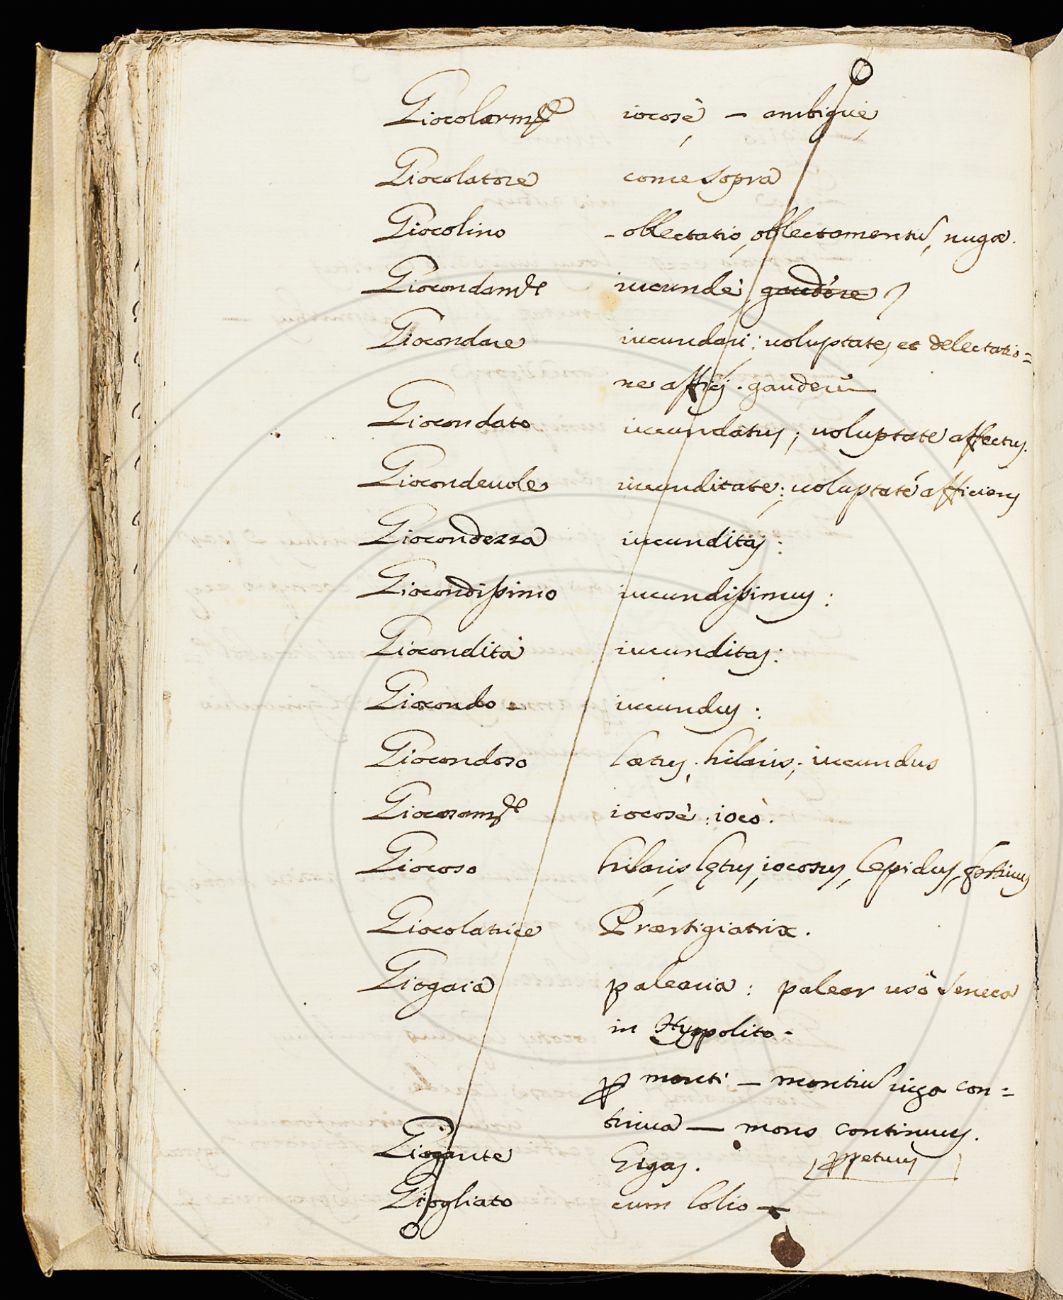 Giocolarmte iocosè – ambiguè
Giocolatore come sopra
Giocolino – oblectatio, oblectamentũ, nugæ.
Giocondamte iucundè, gaudére
Giocondare iucundari: voluptate, et delectatio=
ne affici. gaudeũ
Giocondato iucundatus; voluptate affectus.
Giocondevole iucunditate: voluptaté afficiens
Giocondezza iucunditas:
Giocondissimo iucundissimus:
Giocondità iucunditas:
Giocondo iucundus:
Giocondoso lætus, hilaris; iucundus
Giocosamte iocosè: iocò.
Giocoso hilaris, lętus, iocosus, lepidus, festivus
Giocolatrice Præstigiatrix.
Giogaia palearia: palear usò Seneca
in Hyppolito –
p monti – montiũ iuga con=
tinua – mons continuus.
Giogante Gigas. ppetuus
Giogliato cum lolio –